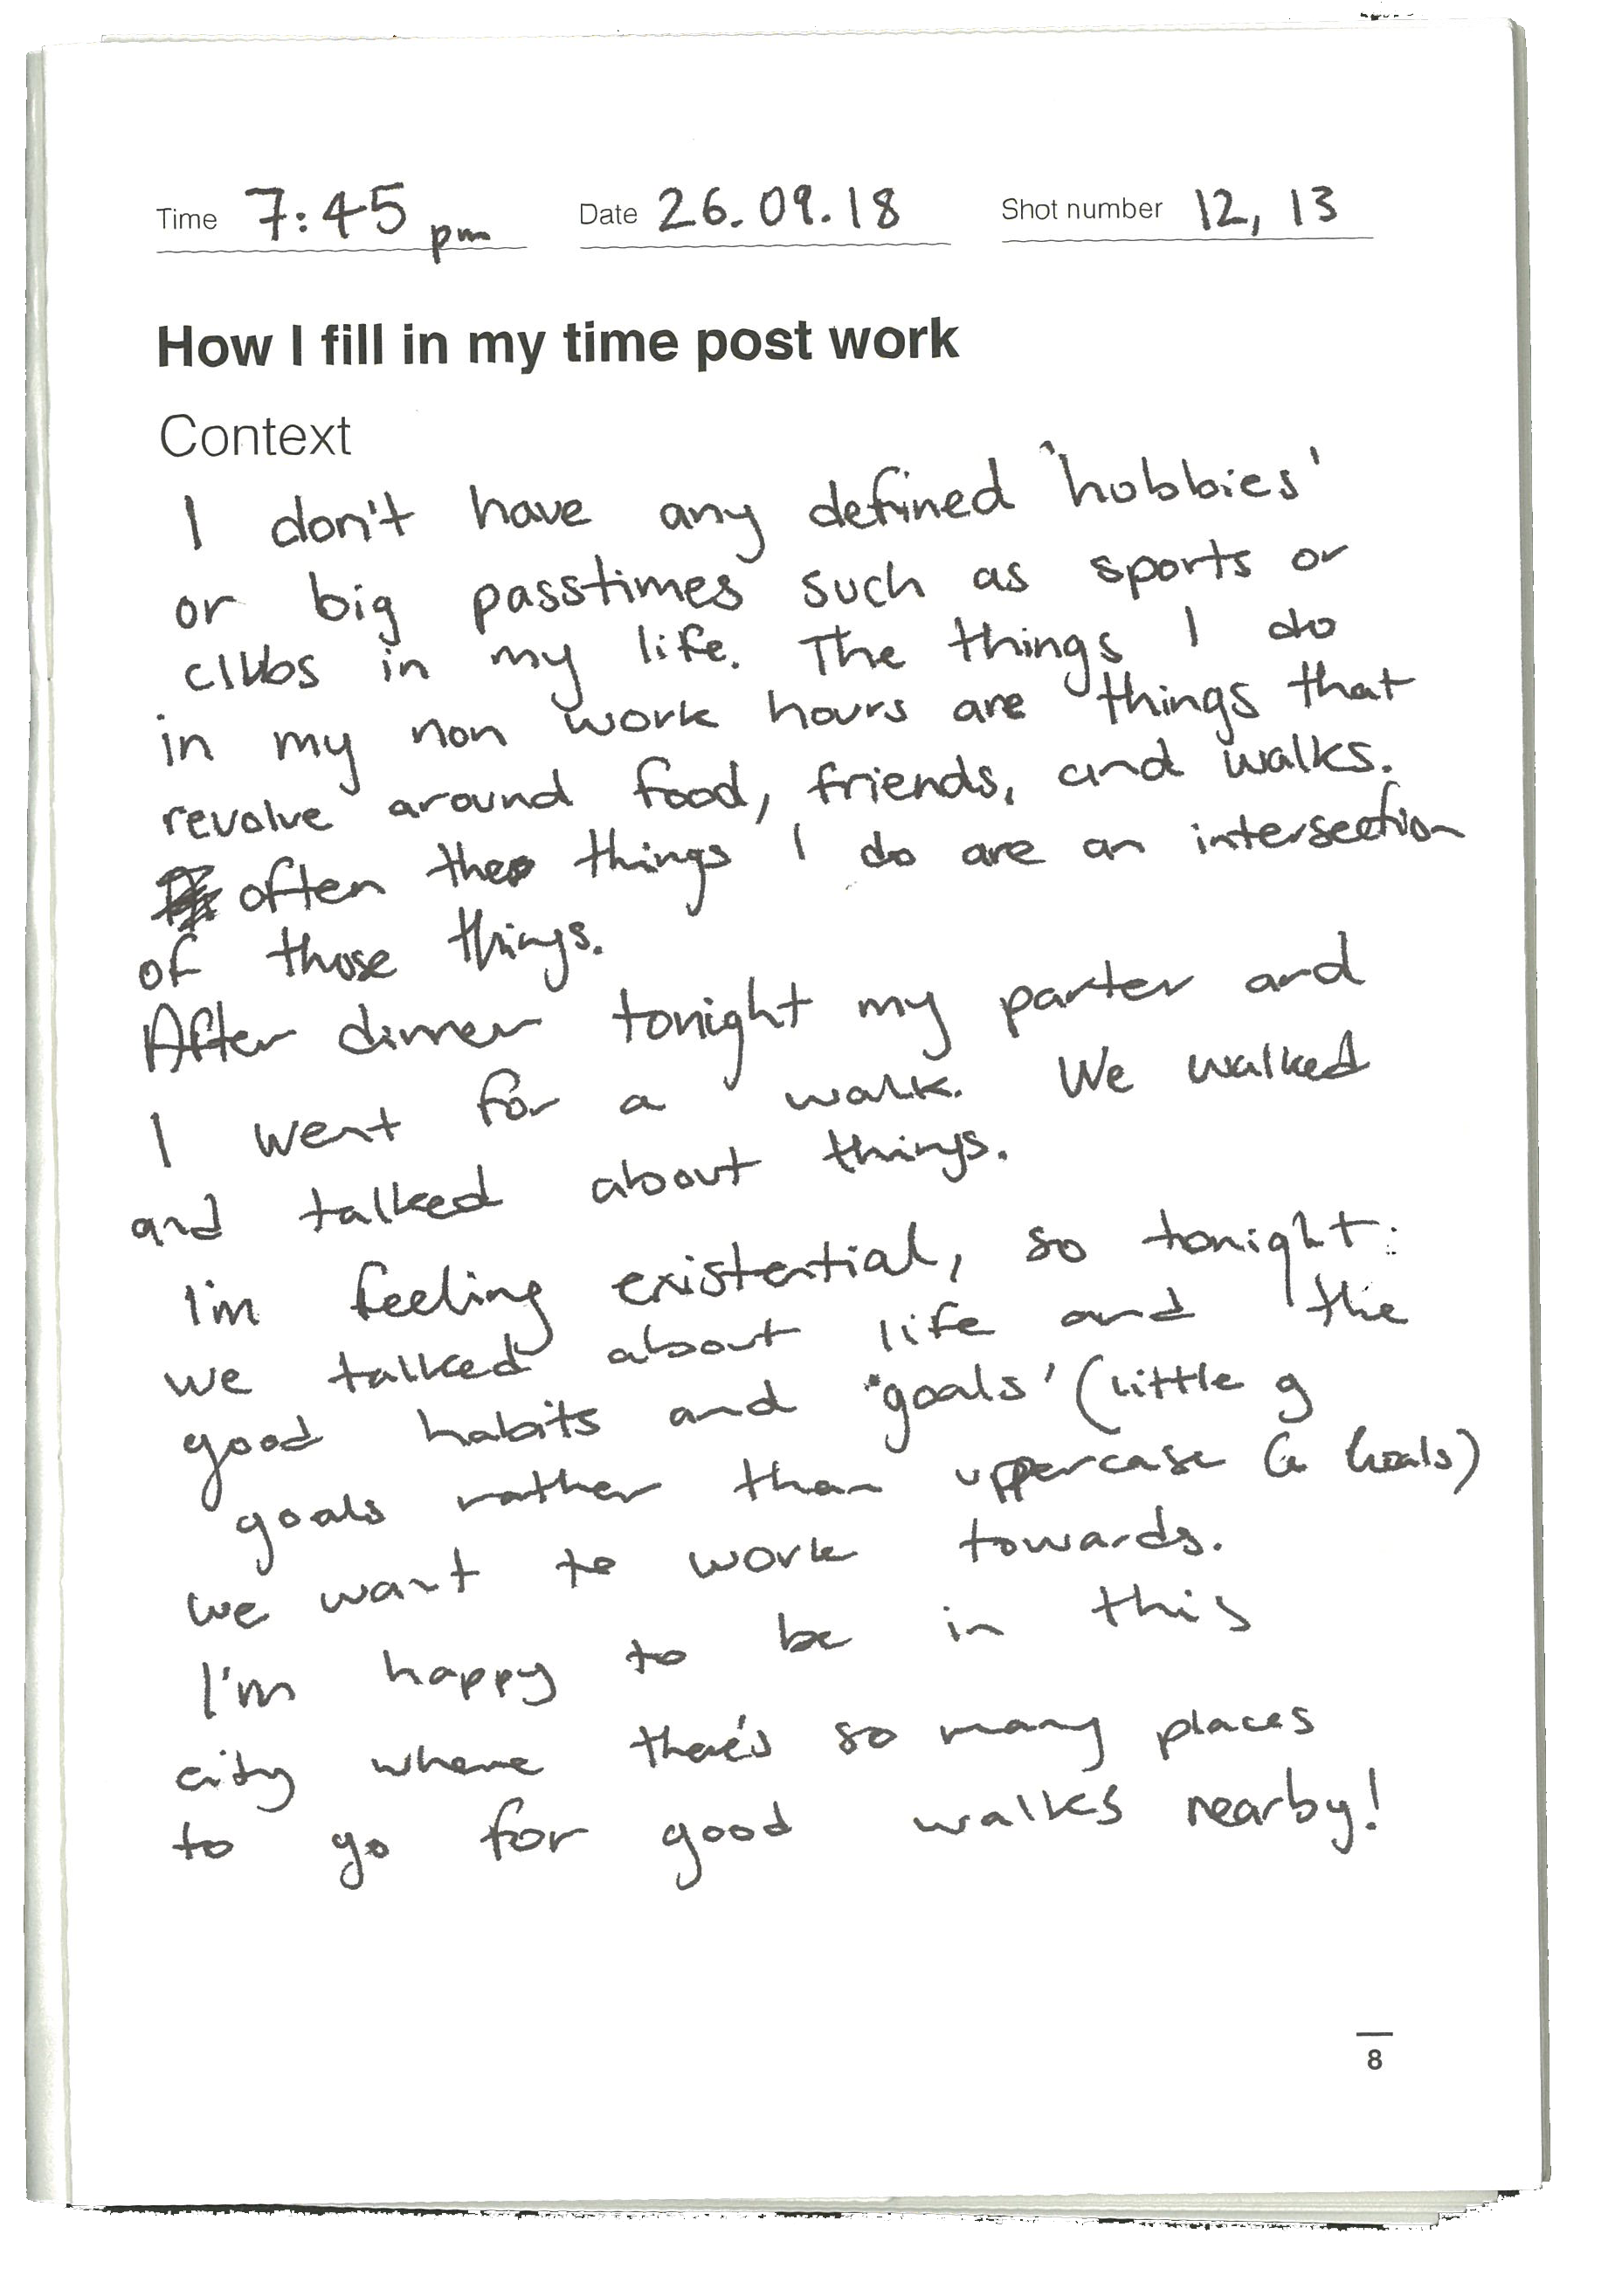 Time 7:45 pm Date 26.09.18 Shot number 12, 13
How I fill in my time post work
Context
I don't have any defined 'hobbies'
or big passtimes such as sports or
clubs in my life. The things I do
in my non work hours are things that
revolve around food, friends, and walks.
often the things I do are an intersection
of those things.
After dinner tonight my parter and
I went for a walk. We walked
and talked about things.
I'm feeling existential, so tonight
we talked about life and the
good habits and 'goals' (little g
goals rather than uppercase G Goals)
we want to work towards.
I'm happy to be in this
city where there's so many places
to go for good walks nearby!
8